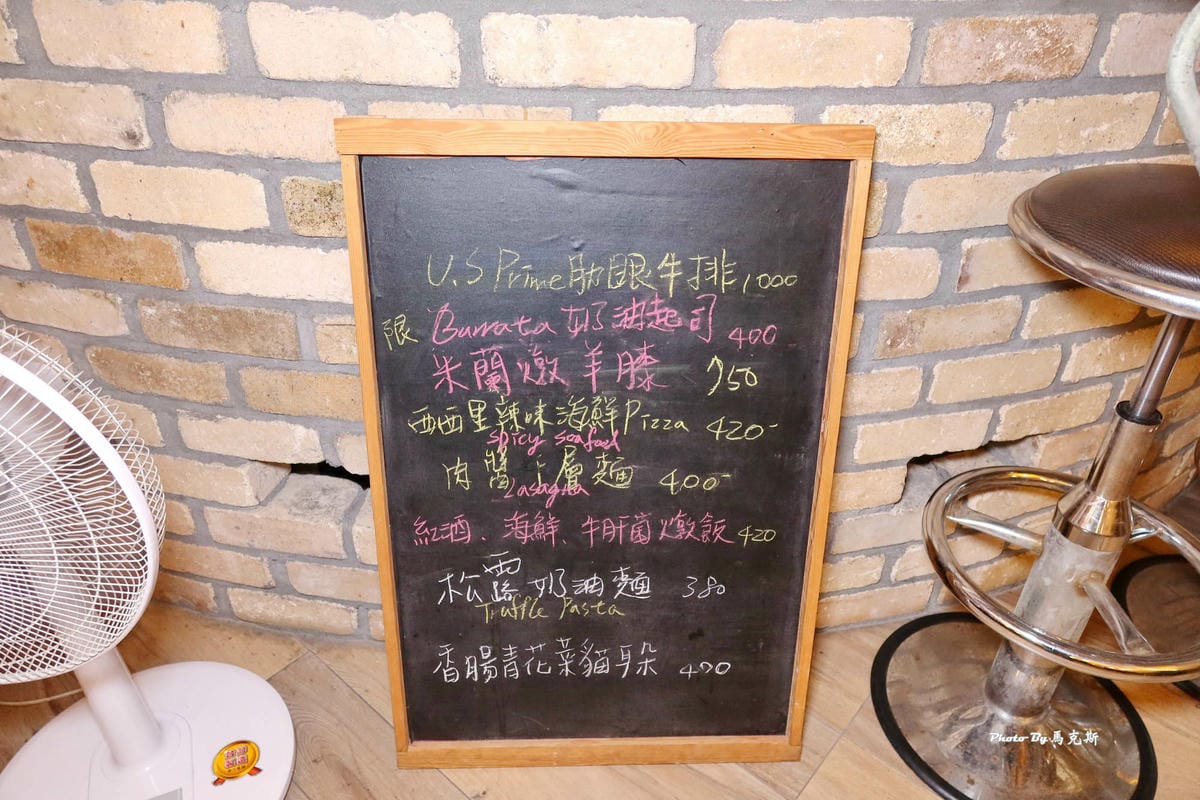 U.S Prime 肋眼牛排 1000
限 Burrata 奶油起司 400
米蘭燉羊膝 950
西西里辣味海鮮Pizza 420-
spicy seafood
肉醬千層麵 400-
Lasagna
紅酒、海鮮、牛肝菌燉飯 420
松露奶油麵 380
Truffle Pasta
香腸青花菜貓耳朵 420
Photo By 馬克斯